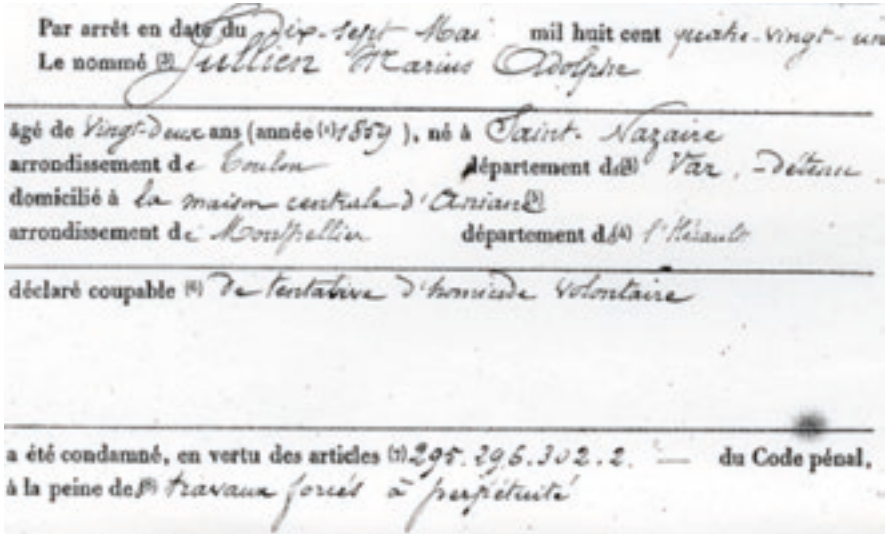 Par arrêt en date du dix-sept Mai mil huit cent quatre-vingt-un
Le nommé (3) Jullien Marius Adolphe
âgé de Vingt-deux ans (année (4) 1859), né à Saint-Nazaire
arrondissement de Toulon département d (5) Var, - détenu
domicilié à la maison centrale d'Aniane
arrondissement de Montpellier département d (4) l'Hérault
déclaré coupable (6) De tentative d'homicide volontaire
a été condamné, en vertu des articles (7) 295. 296. 302. 2. — du Code pénal,
à la peine de (8) travaux forcés à perpétuité